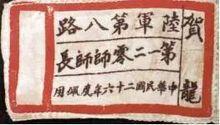 陸軍第八路
第一二零師師長
賀龍
中華民國二十六年度佩用